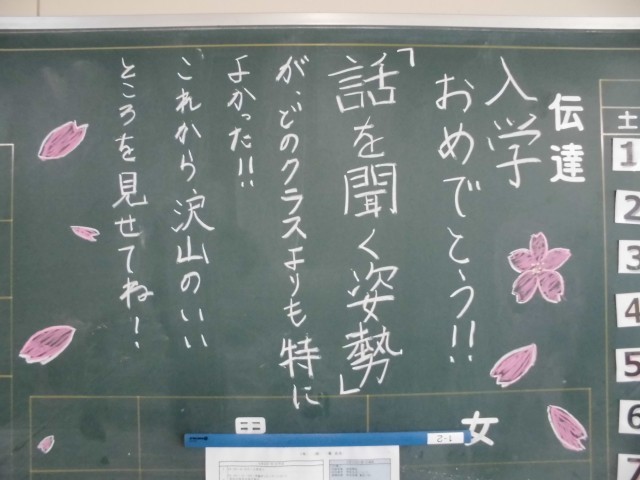 伝達
入学
おめでとう!!
「話を聞く姿勢」
が、どのクラスよりも特に
よかった!!
これから沢山のいい
ところを見せてね!
土
1
2
3
4
5
6
7
男
女
2-1